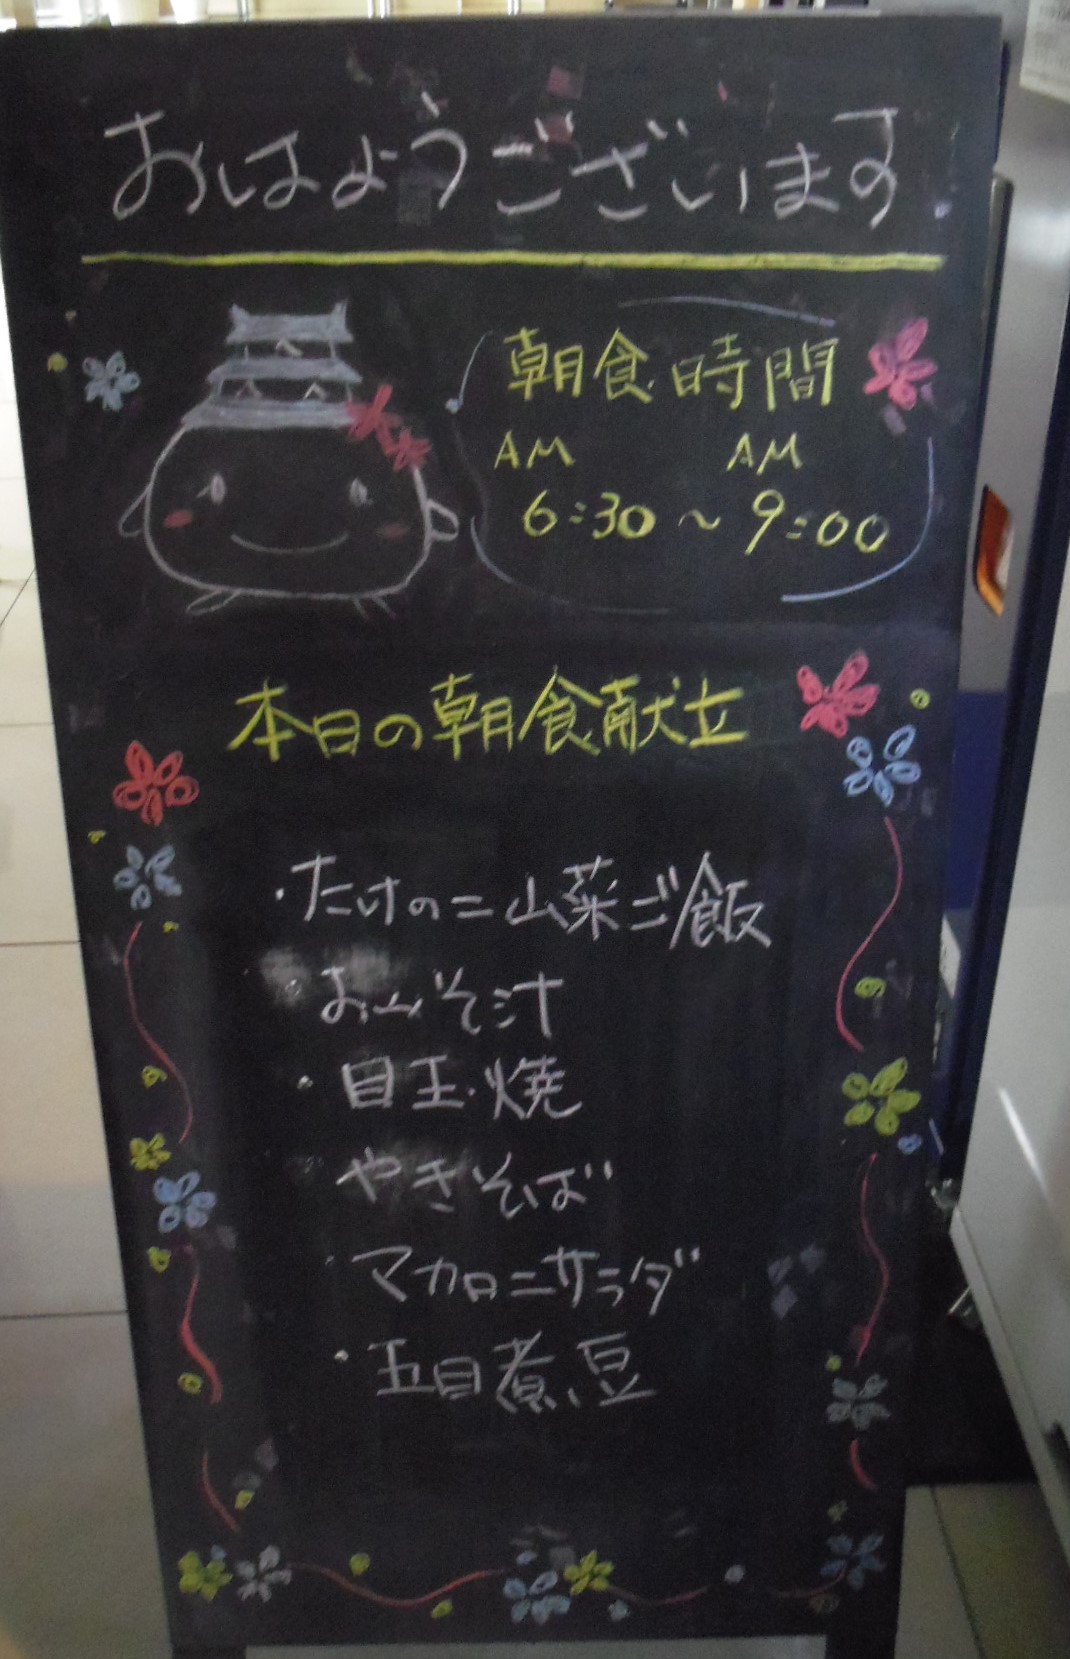 おはようございます
朝食時間
AM AM
6:30～9:00
本日の朝食献立
・たけのこ山菜ご飯
・おみそ汁
・目玉焼
やきそば
・マカロニサラダ
・五目煮豆